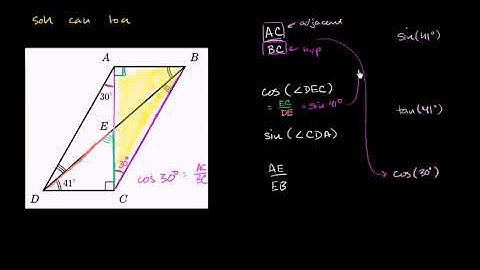 soh cah toa
A
B
30°
E
30°
cos 30° = AC/BC
D
41°
C
AC ← adjacent
BC ← hyp
cos (∠DEC)
= EC/DE = sin 41°
sin (∠CDA)
AE
EB
sin(41°)
tan(41°)
cos(30°)